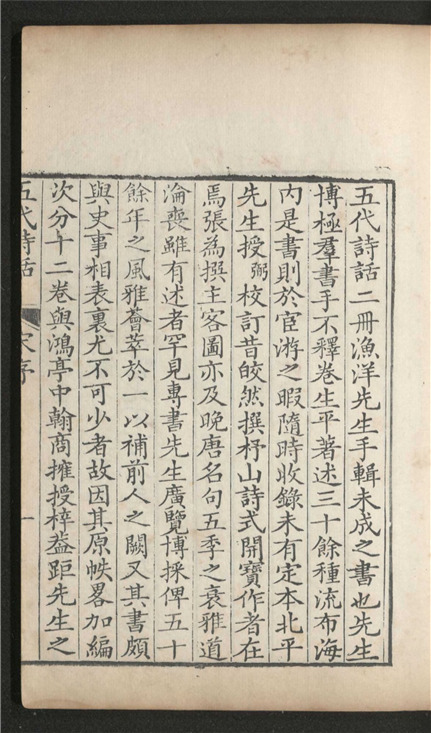 五代詩話二冊漁洋先生手輯未成之書也先生
博極羣書手不釋卷生平著述三十餘種流布海
內是書則於宦游之暇隨時收錄未有定本北平
先生授弼校訂昔皎然撰杼山詩式開寶作者在
焉張為撰主客圖亦及晚唐名句五季之衰雅道
淪喪雖有述者罕見專書先生廣覽博採俾五十
餘年之風雅薈萃於一以補前人之闕又其書頗
與史事相表裏尤不可少者故因其原帙畧加編
次分十二卷與鴻亭中翰商搉授梓葢距先生之
五代詩話 宋序 一